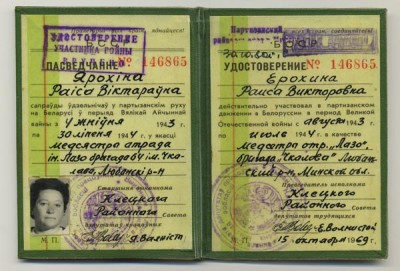 УДОСТОВЕРЕНИЕ
УЧАСТНИКА ВОЙНЫ
ПАСВЕДЧАННЕ № 146865
Ярохіна
Раіса Віктараўна
сапраўды ўдзельнічаў у партызанскім руху
на Беларусі ў перыяд Вялікай Айчыннай
вайны з жніўня 1943 г. па
30 ліпеня 1944 г. у якасці
медсястра атрада
ім. Лазо брыгады ім. Чка-
лава, Любанскі р-н
Старшыня выканкома
Клецкага
Раённага Савета
М. П.
Партизанский
БССР
УДОСТОВЕРЕНИЕ № 146865
Ерохина
Раиса Викторовна
действительно участвовал в партизанском
движении в Белоруссии в период Великой
Отечественной войны с август 1943 г. по
июль 1944 г. в качестве
медсестра отр. "Лазо"
бригада "Чкалова" Любан-
ский р-н, Минской обл.
Председатель исполкома
Клецкого
Районного Совета
депутатов трудящихся
М. П. 15 октября 1969 г.